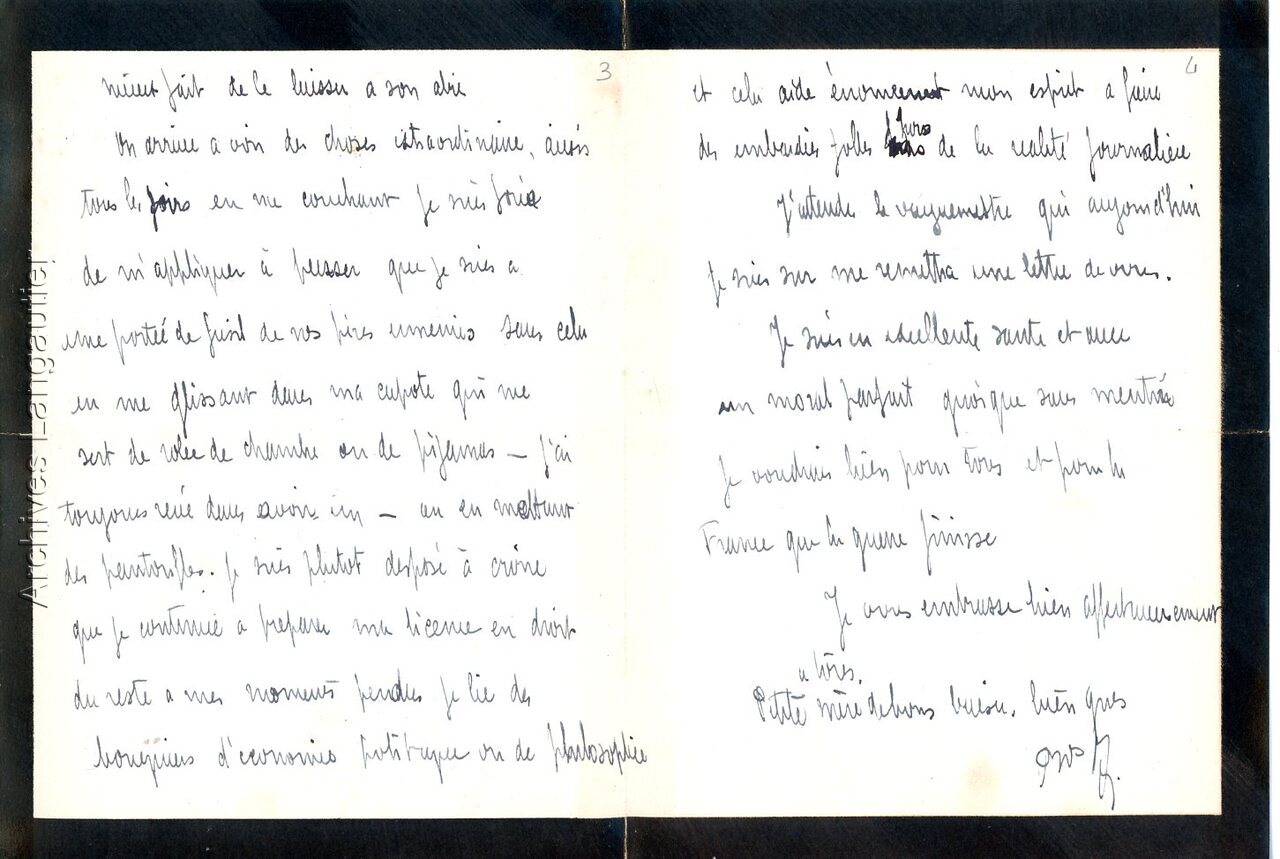 3
mieux fait de le laisser a son abri
On arrive a voir des choses extraordinaire, ainsi
tous les soirs en me couchant je suis forcé
de m'appliquer à penser que je suis a
une porteé de fusil de nos pires ennemis sans cela
en me glissant dans ma capote qui me
sert de robe de chambre ou de pijamas — j'ai
toujours revé avoir un — ou en mettant
des pantoufles. je suis plutot desposé à croire
que je continue a preparer ma licence en droit
du reste a mes moments perdus je lie des
bouquins d'economie politique ou de philosophie
4
et cela aide énormement mon esprit a faire
des embardées folles hors de la realité journalière
J'attends le vaguemestre qui aujourd'hui
je suis sur me remettra une lettre de vous.
Je suis en excellente santé et avec
un moral parfait quoique sans mentir
je voudrais bien pour tous et pour la
France que la guerre finisse
Je vous embrasse bien affectueusement
a tous.
Petite mère de bons baisers. bien gros
Archives Langautier